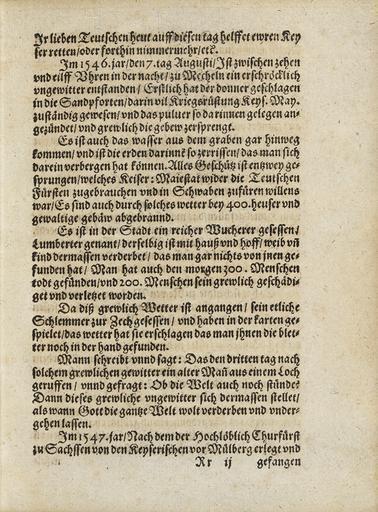 Ir lieben Teutschen heut auff diesen tag helffet ewren Key
ser retten/oder forthin nimmermehr/etc.
Im 1546.jar/den 7.tag Augusti/Ist zwischen zehen
vnd eilff Vhren in der nacht/zu Mecheln ein erschröcklich
vngewitter entstanden/Erstlich hat der donner geschlagen
in die Sandpforten/darin vil Kriegsrüstung Keys. May.
zuständig gewesen/vnd das puluer so darinnen gelegen an-
gezündet/vnd grewlich die gebew zersprengt.
Es ist auch das wasser aus dem graben gar hinweg
kommen/vnd ist die erden darinnẽ so zerrissen/das man sich
darein verbergen hat können. Alles Geschütz ist entzwey ge-
sprungen/welches Keiser: Maiestat wider die Teutschen
Fürsten zugebrauchen vnd in Schwaben zufüren willens
war/Es sind auch durch solches wetter bey 400.heuser vnd
gewaltige gebäw abgebrannd.
Es ist in der Stadt ein reicher Wucherer gesessen/
Lumberter genant/derselbig ist mit hauß vnd hoff/weib vñ
kind dermassen verderbet/das man gar nichts von jnen ge-
funden hat/Man hat auch den morgen 300. Menschen
todt gefunden/vnd 200. Menschen sein grewlich geschädi-
get vnd verletzet worden.
Da diß grewlich Wetter ist angangen/sein etliche
Schlemmer zur Zech gesessen/vnd haben in der karten ge-
spielet/das wetter hat sie erschlagen das man jhnen die blet-
ter noch in der hand gefunden.
Mann schreibt vnnd sagt: Das den dritten tag nach
solchem grewlichen gewitter ein alter Mañ aus einem Loch
geruffen/vnnd gefragt: Ob die Welt auch noch stünde?
Dann dieses grewliche vngewitter sich dermassen stellet/
als wann Gott die gantze Welt wolt verderben vnd vnder-
gehen lassen.
Im 1547.jar/Nach dem der Hochlöblich Churfürst
zu Sachssen von den Keyserischen vor Mülberg erlegt vnd
Rr ij gefangen